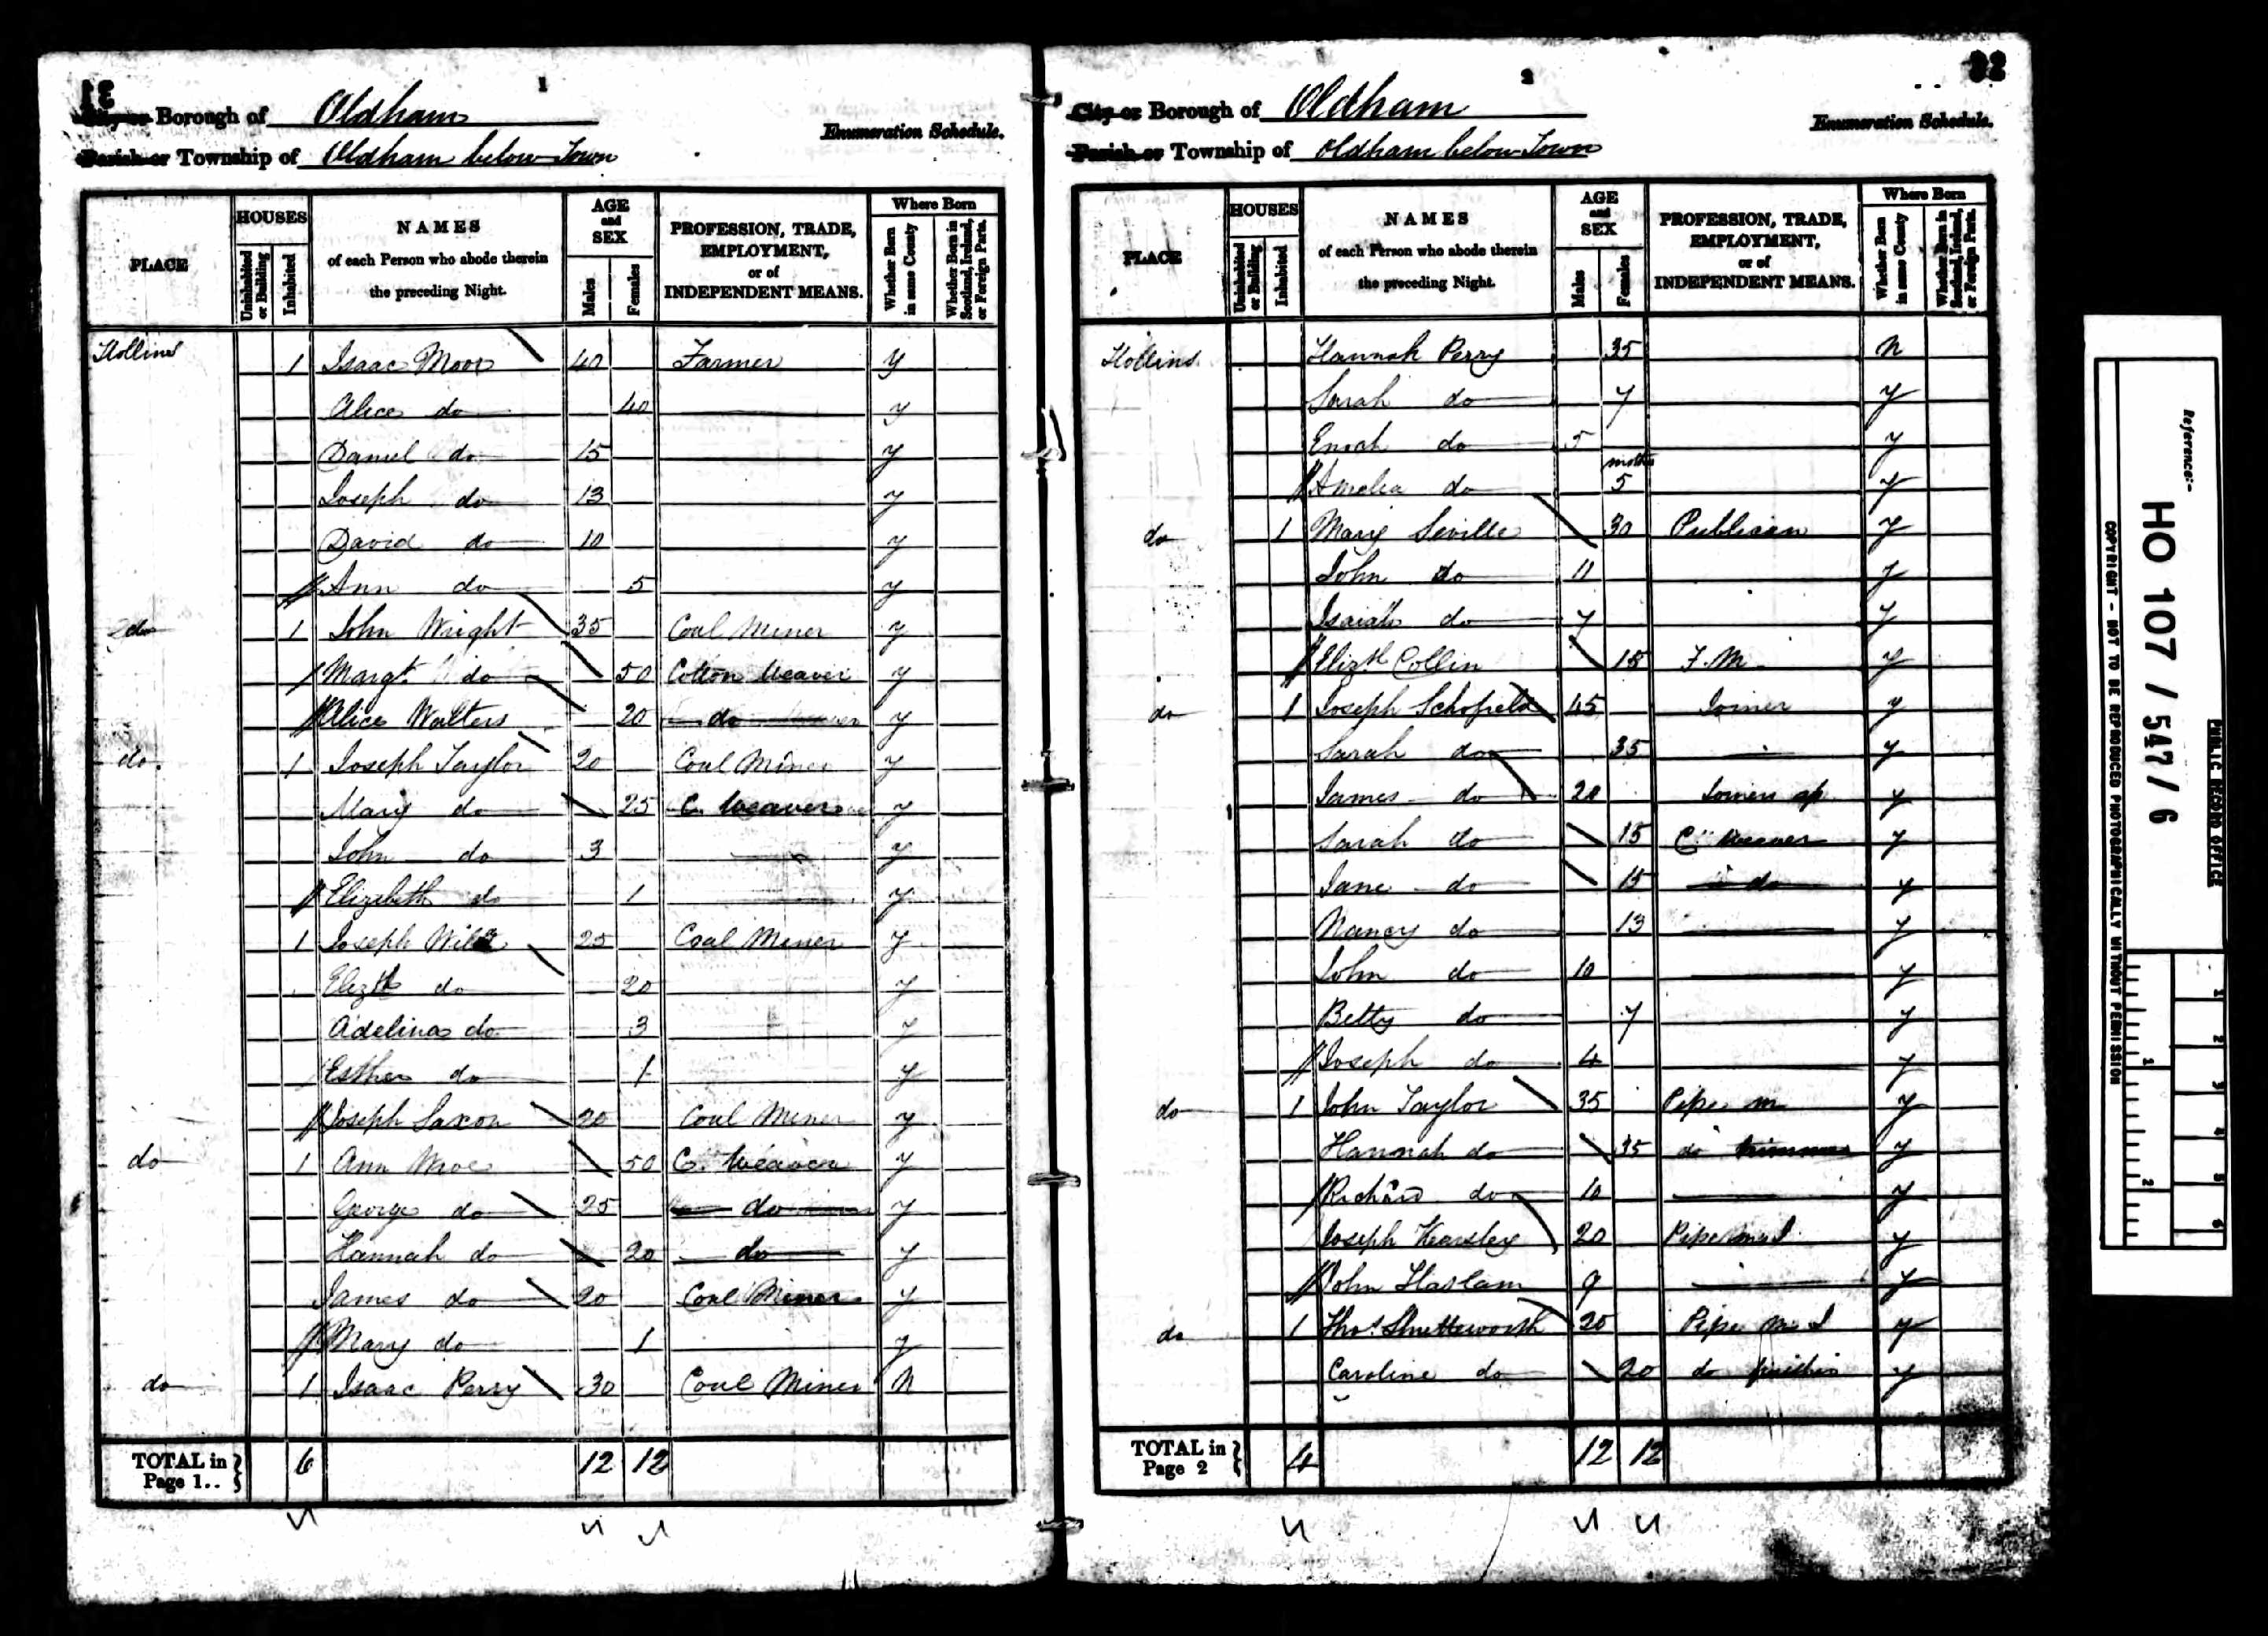 31
1
City or Borough of Oldham
Enumeration Schedule.
Parish or Township of Oldham below Town
PLACE
HOUSES
Uninhabited or Building
Inhabited
NAMES
of each Person who abode therein
the preceding Night.
AGE
and
SEX
Males
Females
PROFESSION, TRADE,
EMPLOYMENT,
or of
INDEPENDENT MEANS.
Where Born
Whether Born in same County
Whether Born in Scotland, Ireland, or Foreign Parts.
Hollins 1 Isaac Moor 40 Farmer y
Alice do 40 y
Daniel do 15 y
Joseph do 13 y
David do 10 y
Ann do 5 y
do 1 John Wright 35 Coal Miner y
Margt. do 50 Cotton Weaver y
Alice Walters 20 do y
do 1 Joseph Taylor 20 Coal Miner y
Mary do 25 C. Weaver y
John do 3 y
Elizabeth do 1 y
1 Joseph Wild 25 Coal Miner y
Elizth do 20 y
Adelina do 3 y
Esther do 1 y
Joseph Saxon 20 Coal Miner y
do 1 Ann 50 C. Weaver y
George do 25 do y
Hannah do 20 do y
James do 20 Coal Miner y
Mary do 1 y
do 1 Isaac Perry 30 Coal Miner N
TOTAL in Page 1.. 6 12 12
32
2
City or Borough of Oldham
Enumeration Schedule.
Parish or Township of Oldham below Town
PLACE
HOUSES
Uninhabited or Building
Inhabited
NAMES
of each Person who abode therein
the preceding Night.
AGE
and
SEX
Males
Females
PROFESSION, TRADE,
EMPLOYMENT,
or of
INDEPENDENT MEANS.
Where Born
Whether Born in same County
Whether Born in Scotland, Ireland, or Foreign Parts.
Hollins Hannah Perry 35 N
Sarah do 7 y
Enoch do 5 y
Amelia do 5 y
do 1 Mary Seville 30 Publican y
John do 11 y
Isaiah do 7 y
Elizth Collin 15 F.M. y
do 1 Joseph Schofield 45 Joiner y
Sarah do 35 y
James do 20 Joiners ap. y
Sarah do 15 C. Weaver y
Jane do 15 do y
Nancy do 13 y
John do 10 y
Betty do 7 y
Joseph do 4 y
do 1 John Taylor 35 Pipe m y
Hannah do 35 do trimmer y
Richard do 10 y
Joseph Kearsley 20 Pipe m J. y
John Haslam 9 y
do 1 Thos. Shuttleworth 20 Pipe m. J y
Caroline do 20 do y
TOTAL in Page 2 4 12 12
Reference:-
HO 107 / 547 / 6
PUBLIC RECORD OFFICE
COPYRIGHT - NOT TO BE REPRODUCED PHOTOGRAPHICALLY WITHOUT PERMISSION
1 2
1 2 3 4 5 6